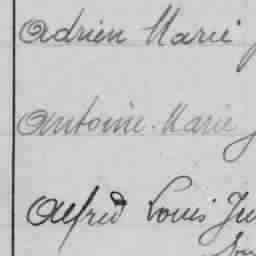 Adrien Marie
Antoine Marie
Alfred Louis